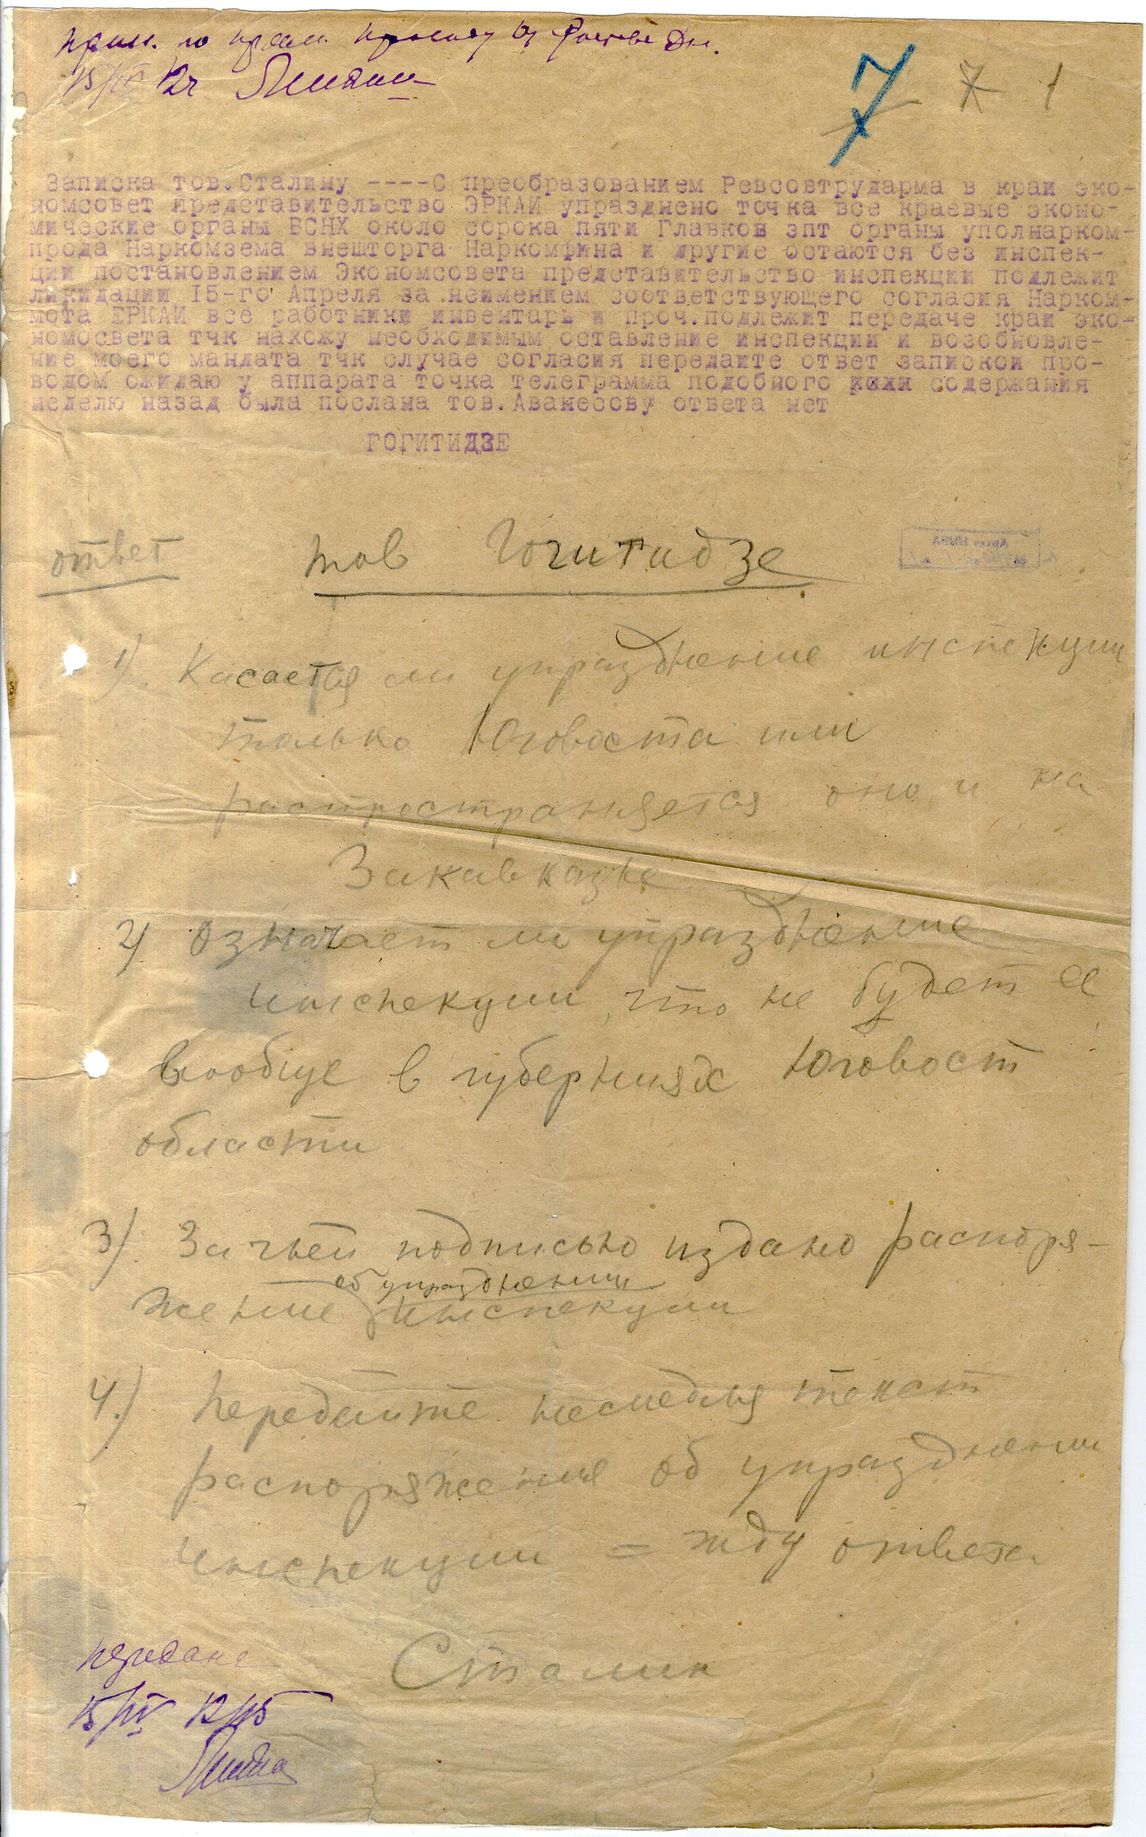 прин. по прям. проводу из Ростова Дн.
15/IV 12ч
7 7 1
Записка тов.Сталину ----С преобразованием Ревсовтрударма в краи эко-
номсовет представительство ЭРКАИ упразднено точка все краевые эконо-
мические органы ВСНХ около сорока пяти Главков зпт органы уполнарком-
прода Наркомзема внешторга Наркомфина и другие остаются без инспек-
ции постановлением Экономсовета представительство инспекции подлежит
ликидации 15-го Апреля за неимением соответствующего согласия Нарком-
мота ЕРКАИ все работники инвентарь и проч.подлежит передаче краи эко-
номосвета тчк нахожу необходимым оставление инспекции и возобновле-
ние моего мандата тчк случае согласия передаите ответ запискои про-
водом ожидаю у аппарата точка телеграмма подобного содержания
неделю назад была послана тов.Аванесову ответа нет
ГОГИТИДЗЕ
ответ тов Гогитидзе
1). Касается ли упразднение инспекции
только Юговоста или
распространяется оно и на
Закавказье
2) Означает ли упразднение
инспекции, что не будет ее
вообще в губерниях Юговост
области
3). За чьей подписью издано распоря-
об упразднении
жение инспекции
4.) Передайте немедля текст
распоряжения об упразднении
инспекции = жду ответа
Сталин
передано
15/IV 12/45